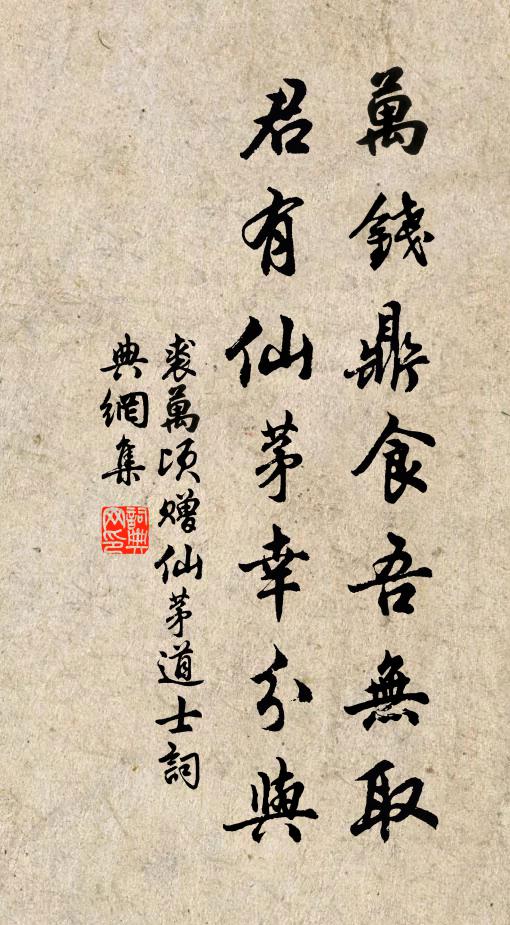 萬錢鼎食吾無取
君有仙茅幸分與
裘萬頃贈仙茅道士詞
典網集
詞典網印